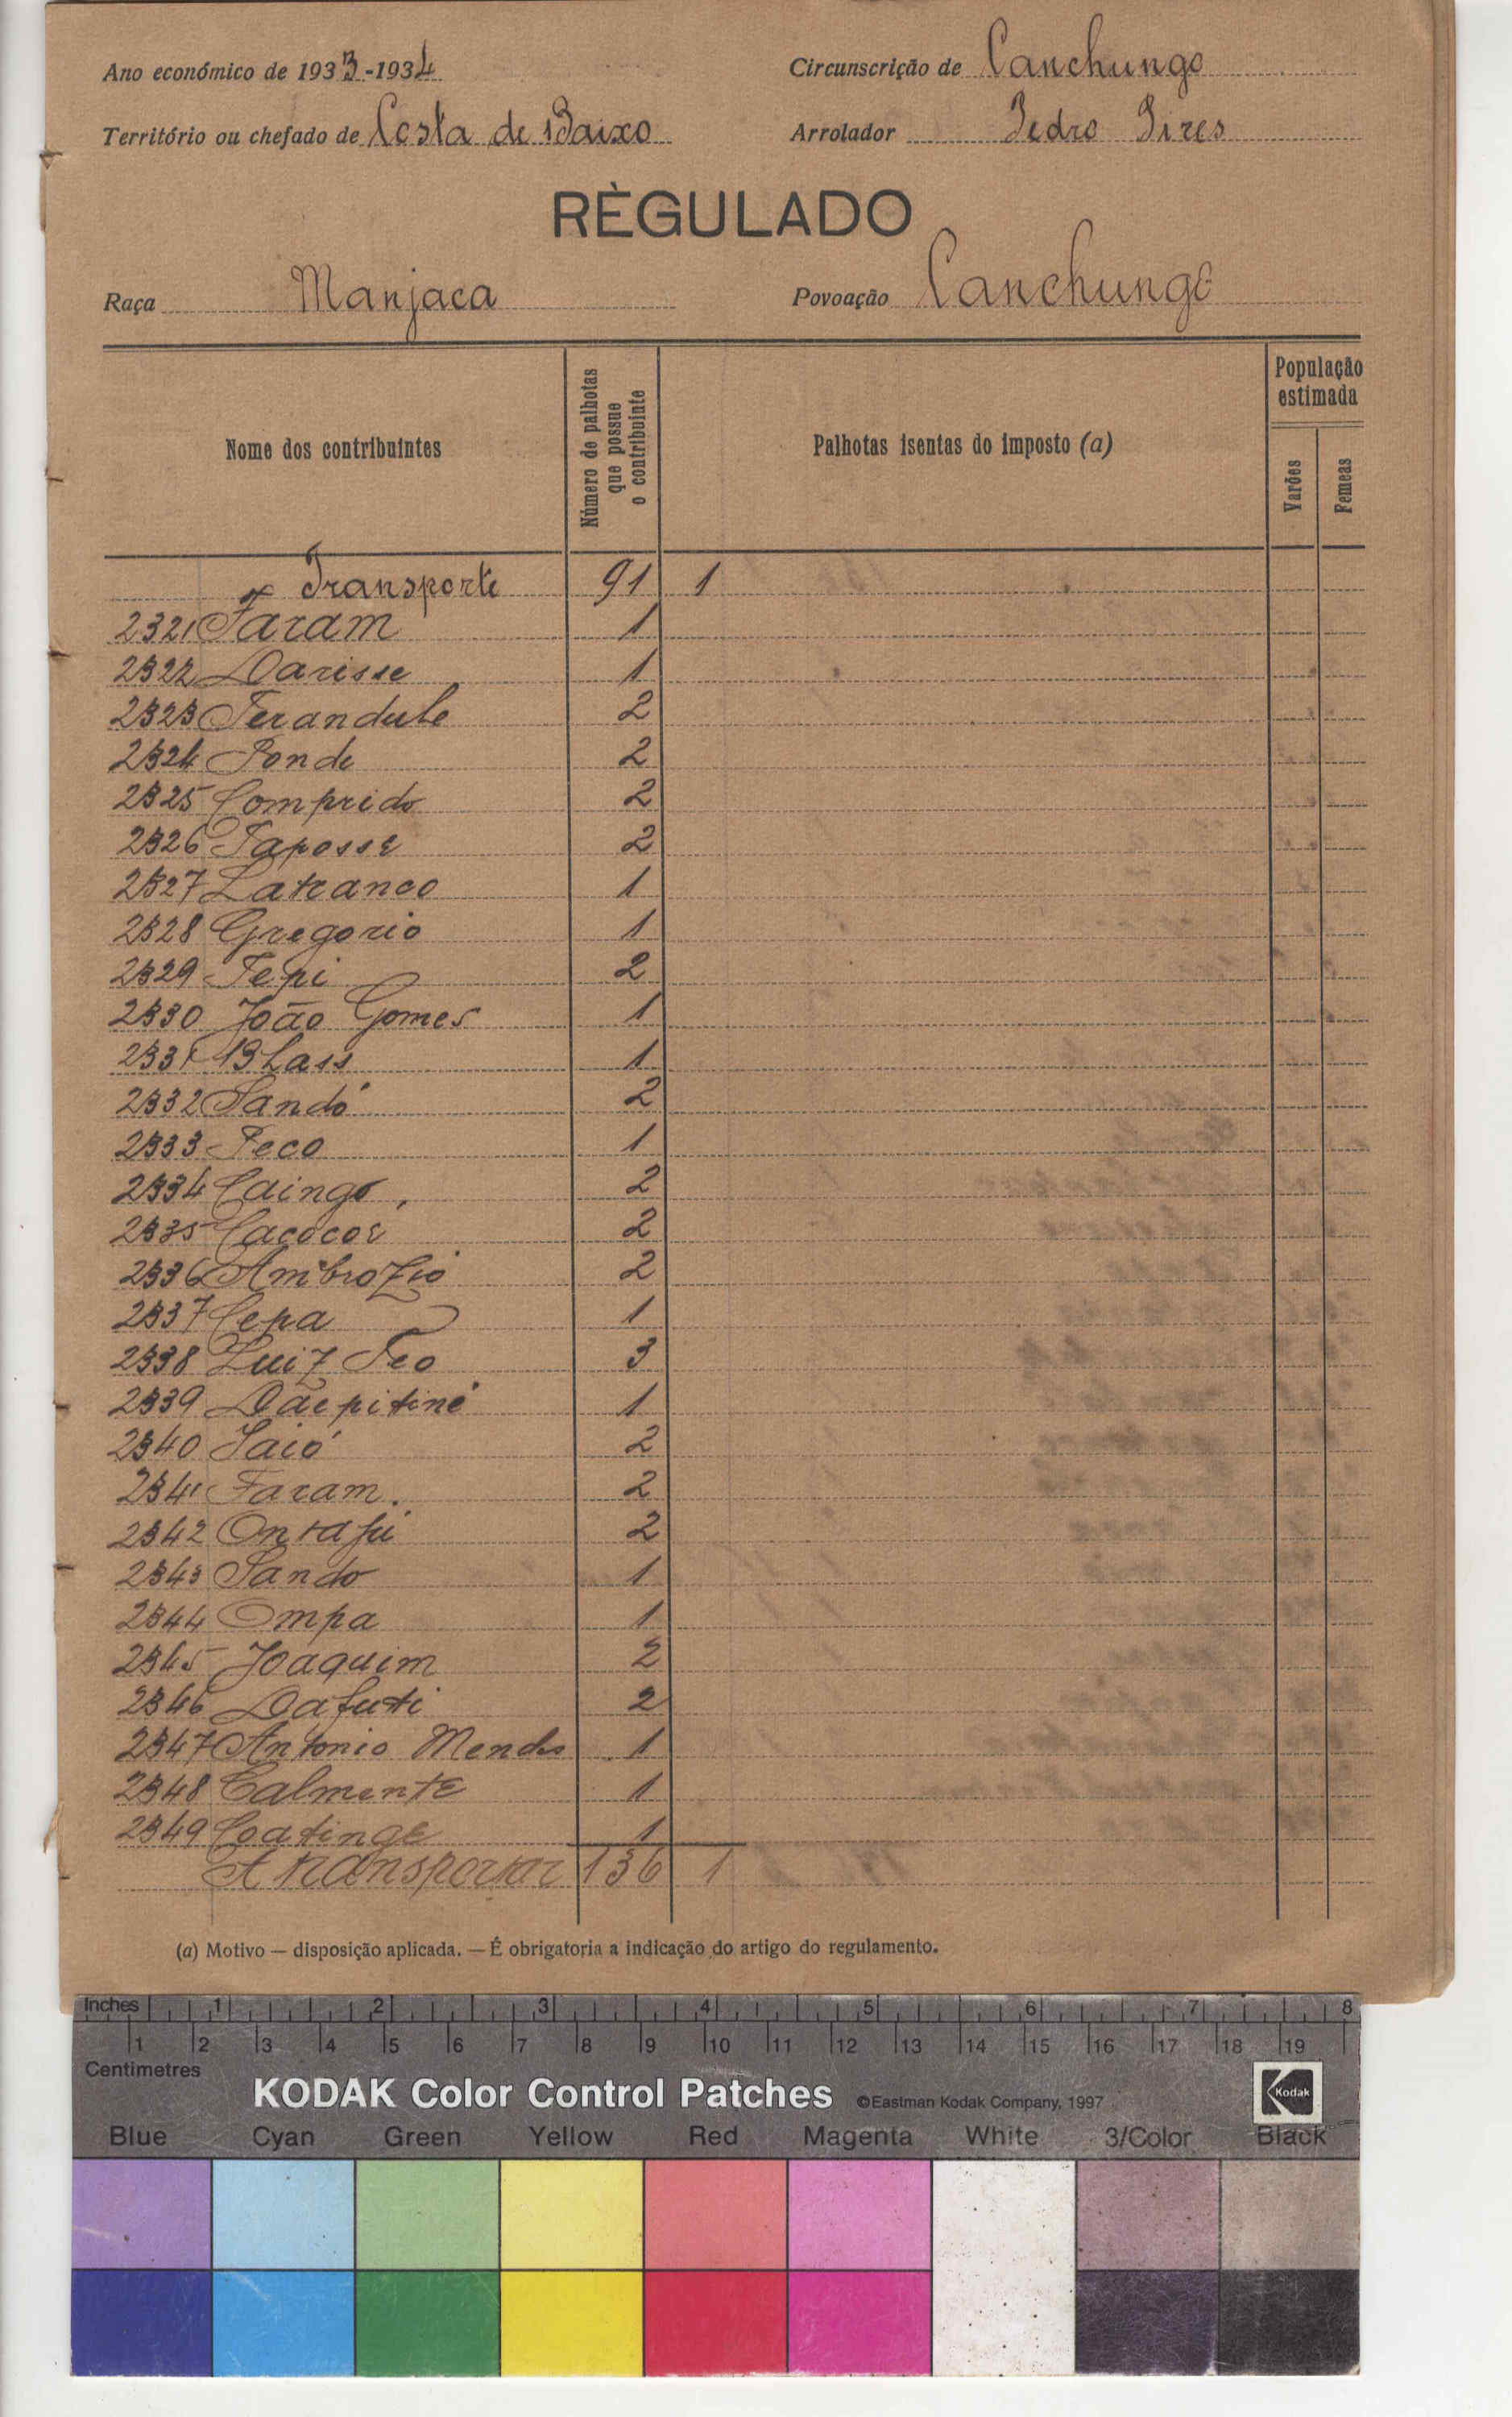 Ano económico de 1933-1934 Circunscrição de Canchungo
Território ou chefado de Costa de Baixo Arrolador Pedro Pires
RÈGULADO
Raça Manjaca Povoação Canchungo
Nome dos contribuintes
Número de palhotas que possue o contribuinte
Palhotas isentas do imposto (a)
População estimada
Varões
Femeas
Transporte 91 1
2321 Faram 1
2322 Darisse 1
2323 Ferandule 2
2324 Ponde 2
2325 Comprido 2
2326 Taposse 2
2327 Latranco 1
2328 Gregorio 1
2329 Tepi 2
2330 João Gomes 1
2331 Blass 1
2332 Sandó 2
2333 Peco 1
2334 Caingo 2
2335 Cacocoe 2
2336 Ambrozio 2
2337 Cepa 1
2338 Luiz Teo 3
2339 Daepitiné 1
2340 Jaió 2
2341 Faram 2
2342 Ontafú 2
2343 Sando 1
2344 Ompa 1
2345 Joaquim 2
2346 Dafuti 2
2347 Antonio Mendes 1
2348 Calmente 1
2349 Coatinge 1
A transportar 136 1
(a) Motivo — disposição aplicada. — É obrigatoria a indicação do artigo do regulamento.
Inches 1 2 3 4 5 6 7 8
1 2 3 4 5 6 7 8 9 10 11 12 13 14 15 16 17 18 19
Centimetres
KODAK Color Control Patches ©Eastman Kodak Company, 1997 Kodak
Blue Cyan Green Yellow Red Magenta White 3/Color Black